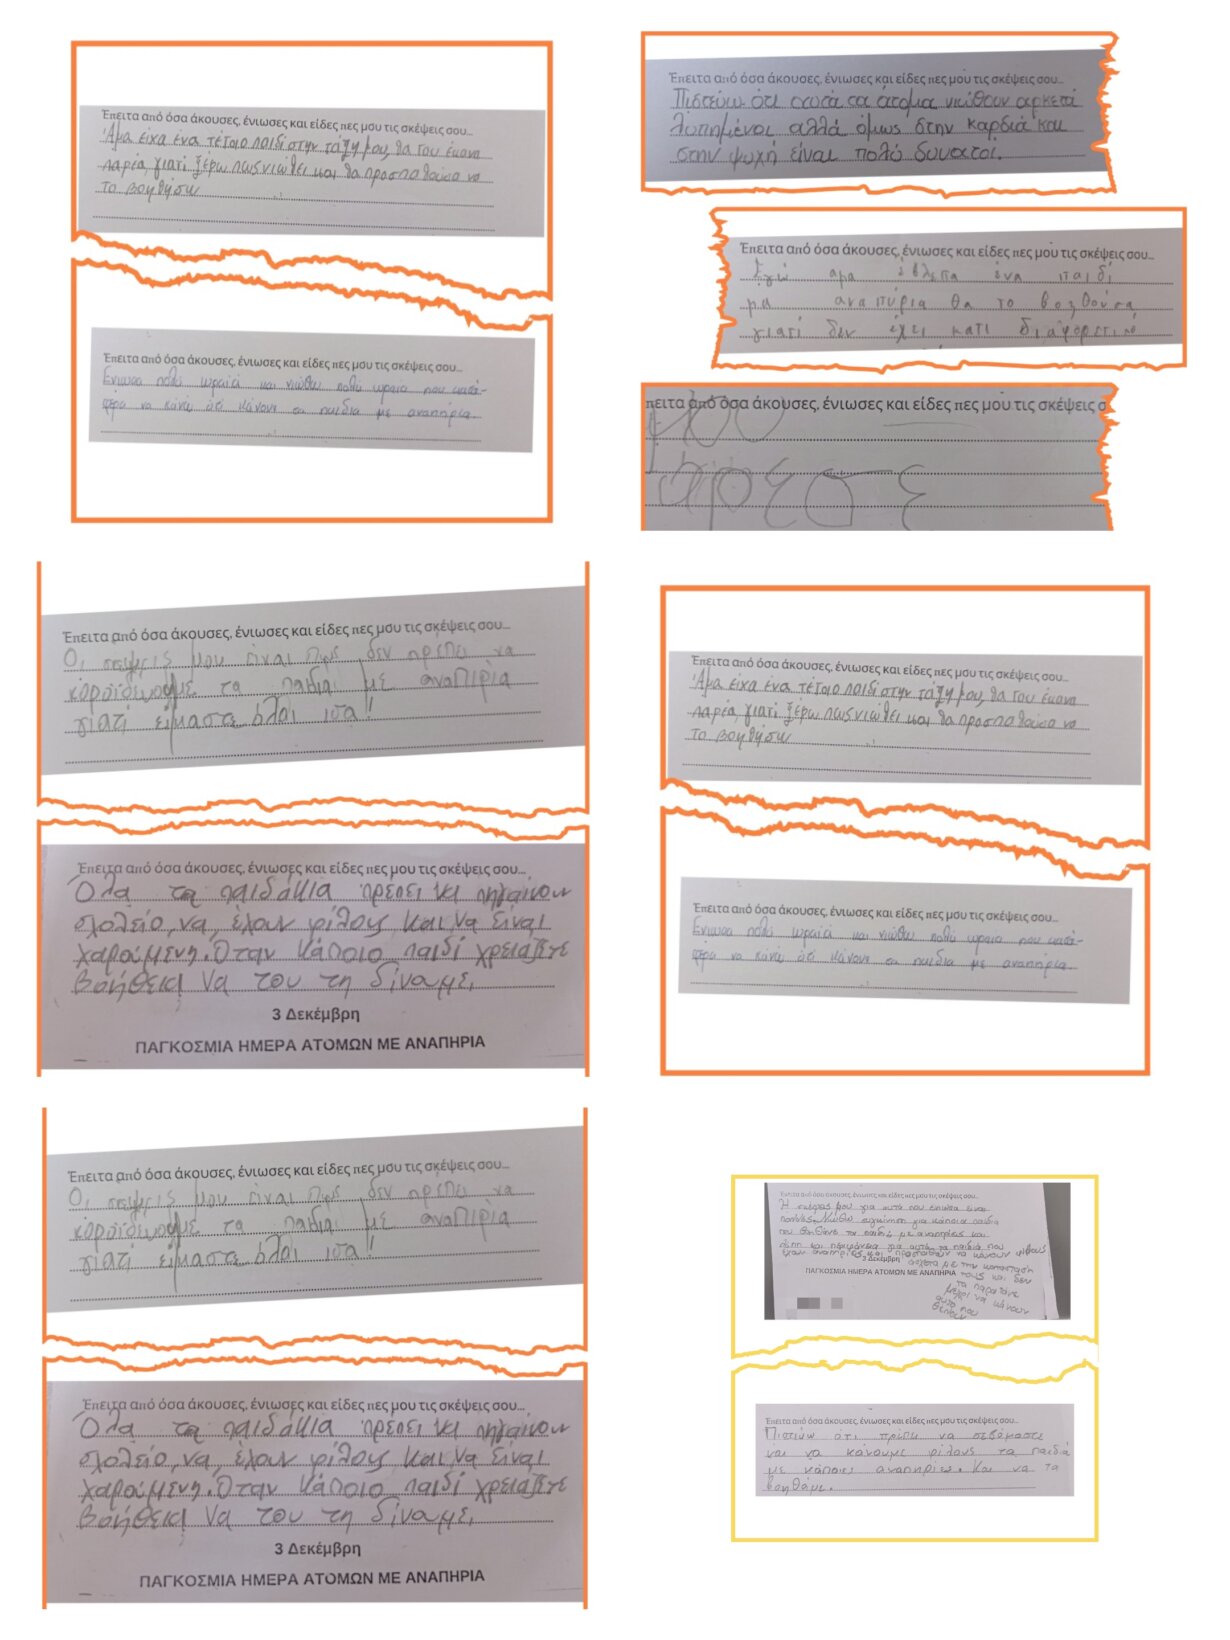 Έπειτα από όσα άκουσες, ένιωσες και είδες πες μου τις σκέψεις σου...
Άμα είχα ένα τέτοιο παιδί στην τάξη μου, θα του έκανα
παρέα, γιατί ξέρω πως νιώθει και θα προσπαθούσα να
το βοηθήσω
Έπειτα από όσα άκουσες, ένιωσες και είδες πες μου τις σκέψεις σου...
Ένιωσα πολύ ωραία και νιώθω πολύ ωραία που κατά-
φερα να κάνω ότι κάνουν τα παιδια με αναπηρία.
Έπειτα από όσα άκουσες, ένιωσες και είδες πες μου τις σκέψεις σου...
Πιστεύω ότι αυτά τα άτομα νιώθουν αρκετά
λυπημένοι αλλά όμως στην καρδιά και
στην ψυχή είναι πολύ δυνατοί.
Έπειτα από όσα άκουσες, ένιωσες και είδες πες μου τις σκέψεις σου...
Εγώ αμα έβλεπα ένα παιδί
μα αναπύρια θα το βοηθούσα
γιατί δεν έχει κατι διαφορετικό
πειτα από όσα άκουσες, ένιωσες και είδες πες μου τις σκέψεις σ
μου
άρεσε
Έπειτα από όσα άκουσες, ένιωσες και είδες πες μου τις σκέψεις σου...
Οι σκέψεις μου είναι πως δεν πρέπει να
κοροϊδευουμε τα παιδια με αναπιρία
γιατί είμαστε όλοι ισα!
Έπειτα από όσα άκουσες, ένιωσες και είδες πες μου τις σκέψεις σου...
Όλα τα παιδάκια πρέπει να πηγαίνουν
σχολείο, να έχουν φίλους και να είναι
χαρούμενη. Όταν κάποιο παιδί χρειάζετε
βοήθεια να του τη δίναμε.
3 Δεκέμβρη
ΠΑΓΚΟΣΜΙΑ ΗΜΕΡΑ ΑΤΟΜΩΝ ΜΕ ΑΝΑΠΗΡΙΑ
Έπειτα από όσα άκουσες, ένιωσες και είδες πες μου τις σκέψεις σου...
Άμα είχα ένα τέτοιο παιδί στην τάξη μου, θα του έκανα
παρέα, γιατί ξέρω πως νιώθει και θα προσπαθούσα να
το βοηθήσω
Έπειτα από όσα άκουσες, ένιωσες και είδες πες μου τις σκέψεις σου...
Ένιωσα πολύ ωραία και νιώθω πολύ ωραία που κατά-
φερα να κάνω ότι κάνουν τα παιδια με αναπηρία.
Έπειτα από όσα άκουσες, ένιωσες και είδες πες μου τις σκέψεις σου...
Οι σκέψεις μου είναι πως δεν πρέπει να
κοροϊδευουμε τα παιδια με αναπιρία
γιατί είμαστε όλοι ισα!
Έπειτα από όσα άκουσες, ένιωσες και είδες πες μου τις σκέψεις σου...
Όλα τα παιδάκια πρέπει να πηγαίνουν
σχολείο, να έχουν φίλους και να είναι
χαρούμενη. Όταν κάποιο παιδί χρειάζετε
βοήθεια να του τη δίναμε.
3 Δεκέμβρη
ΠΑΓΚΟΣΜΙΑ ΗΜΕΡΑ ΑΤΟΜΩΝ ΜΕ ΑΝΑΠΗΡΙΑ
Έπειτα από όσα άκουσες, ένιωσες και είδες πες μου τις σκέψεις σου...
Η σκέψεις μου για αυτά που ένιωσα είναι
πολλές. Νιώθω συγκίνηση για κάποια παιδιά
που βοηθάνε τα παιδιά με αναπηρίες και
και περιφάνεια για αυτά τα παιδιά που
έχουν αναπηρίες και προσπαθούν να κάνουν φίλους
3 Δεκέμβρη
με την κατάσταση
ΠΑΓΚΟΣΜΙΑ ΗΜΕΡΑ ΑΤΟΜΩΝ ΜΕ ΑΝΑΠΗΡΙΑ τους και δεν
τα παρατάνε
μέχρι να κάνουν
αυτό που
θέλουν
Έπειτα από όσα άκουσες, ένιωσες και είδες πες μου τις σκέψεις σου...
Πιστεύω ότι πρέπει να σεβόμαστε
και να κάνουμε φίλους τα παιδιά
με κάποιες αναπηρίες. Και να τα
βοηθάμε.